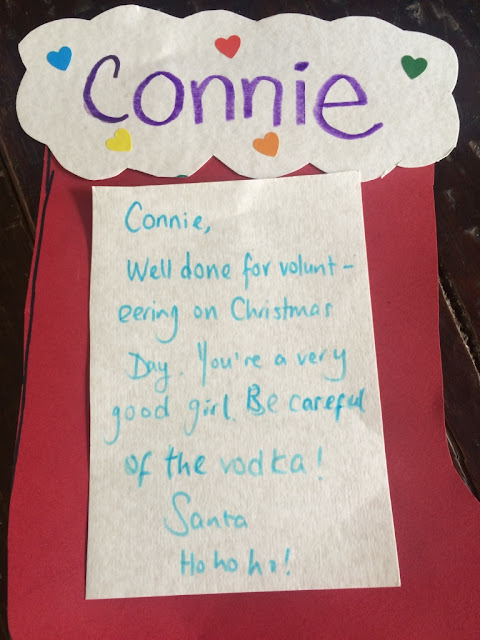 Connie
Connie,
Well done for volunt-
eering on Christmas
Day. You're a very
good girl. Be careful
of the vodka!
Santa
Ho ho ho!